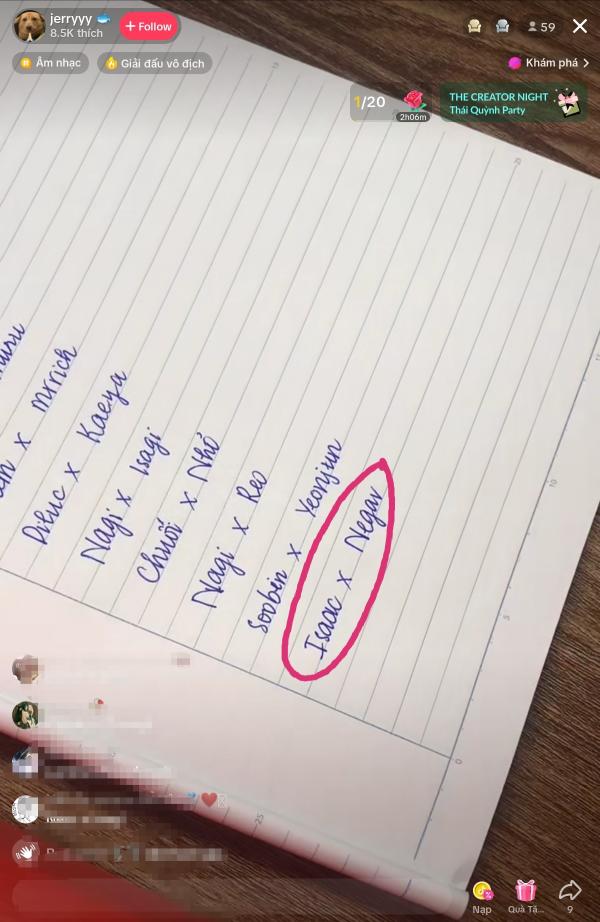 jerryyy
8.5K thích
+ Follow
59
Âm nhạc
Giải đấu vô địch
Khám phá >
1/20
2h06m
THE CREATOR NIGHT
Thái Quỳnh Party
x mrrich
Diluc x Kaeya
Nagi x Isagi
Chuối x Nhỏ
Nagi x Reo
Soobin x Yeonjun
Isaac x Negav
15
20
10
5
0
25
Nạp
Quà Tặ...
9